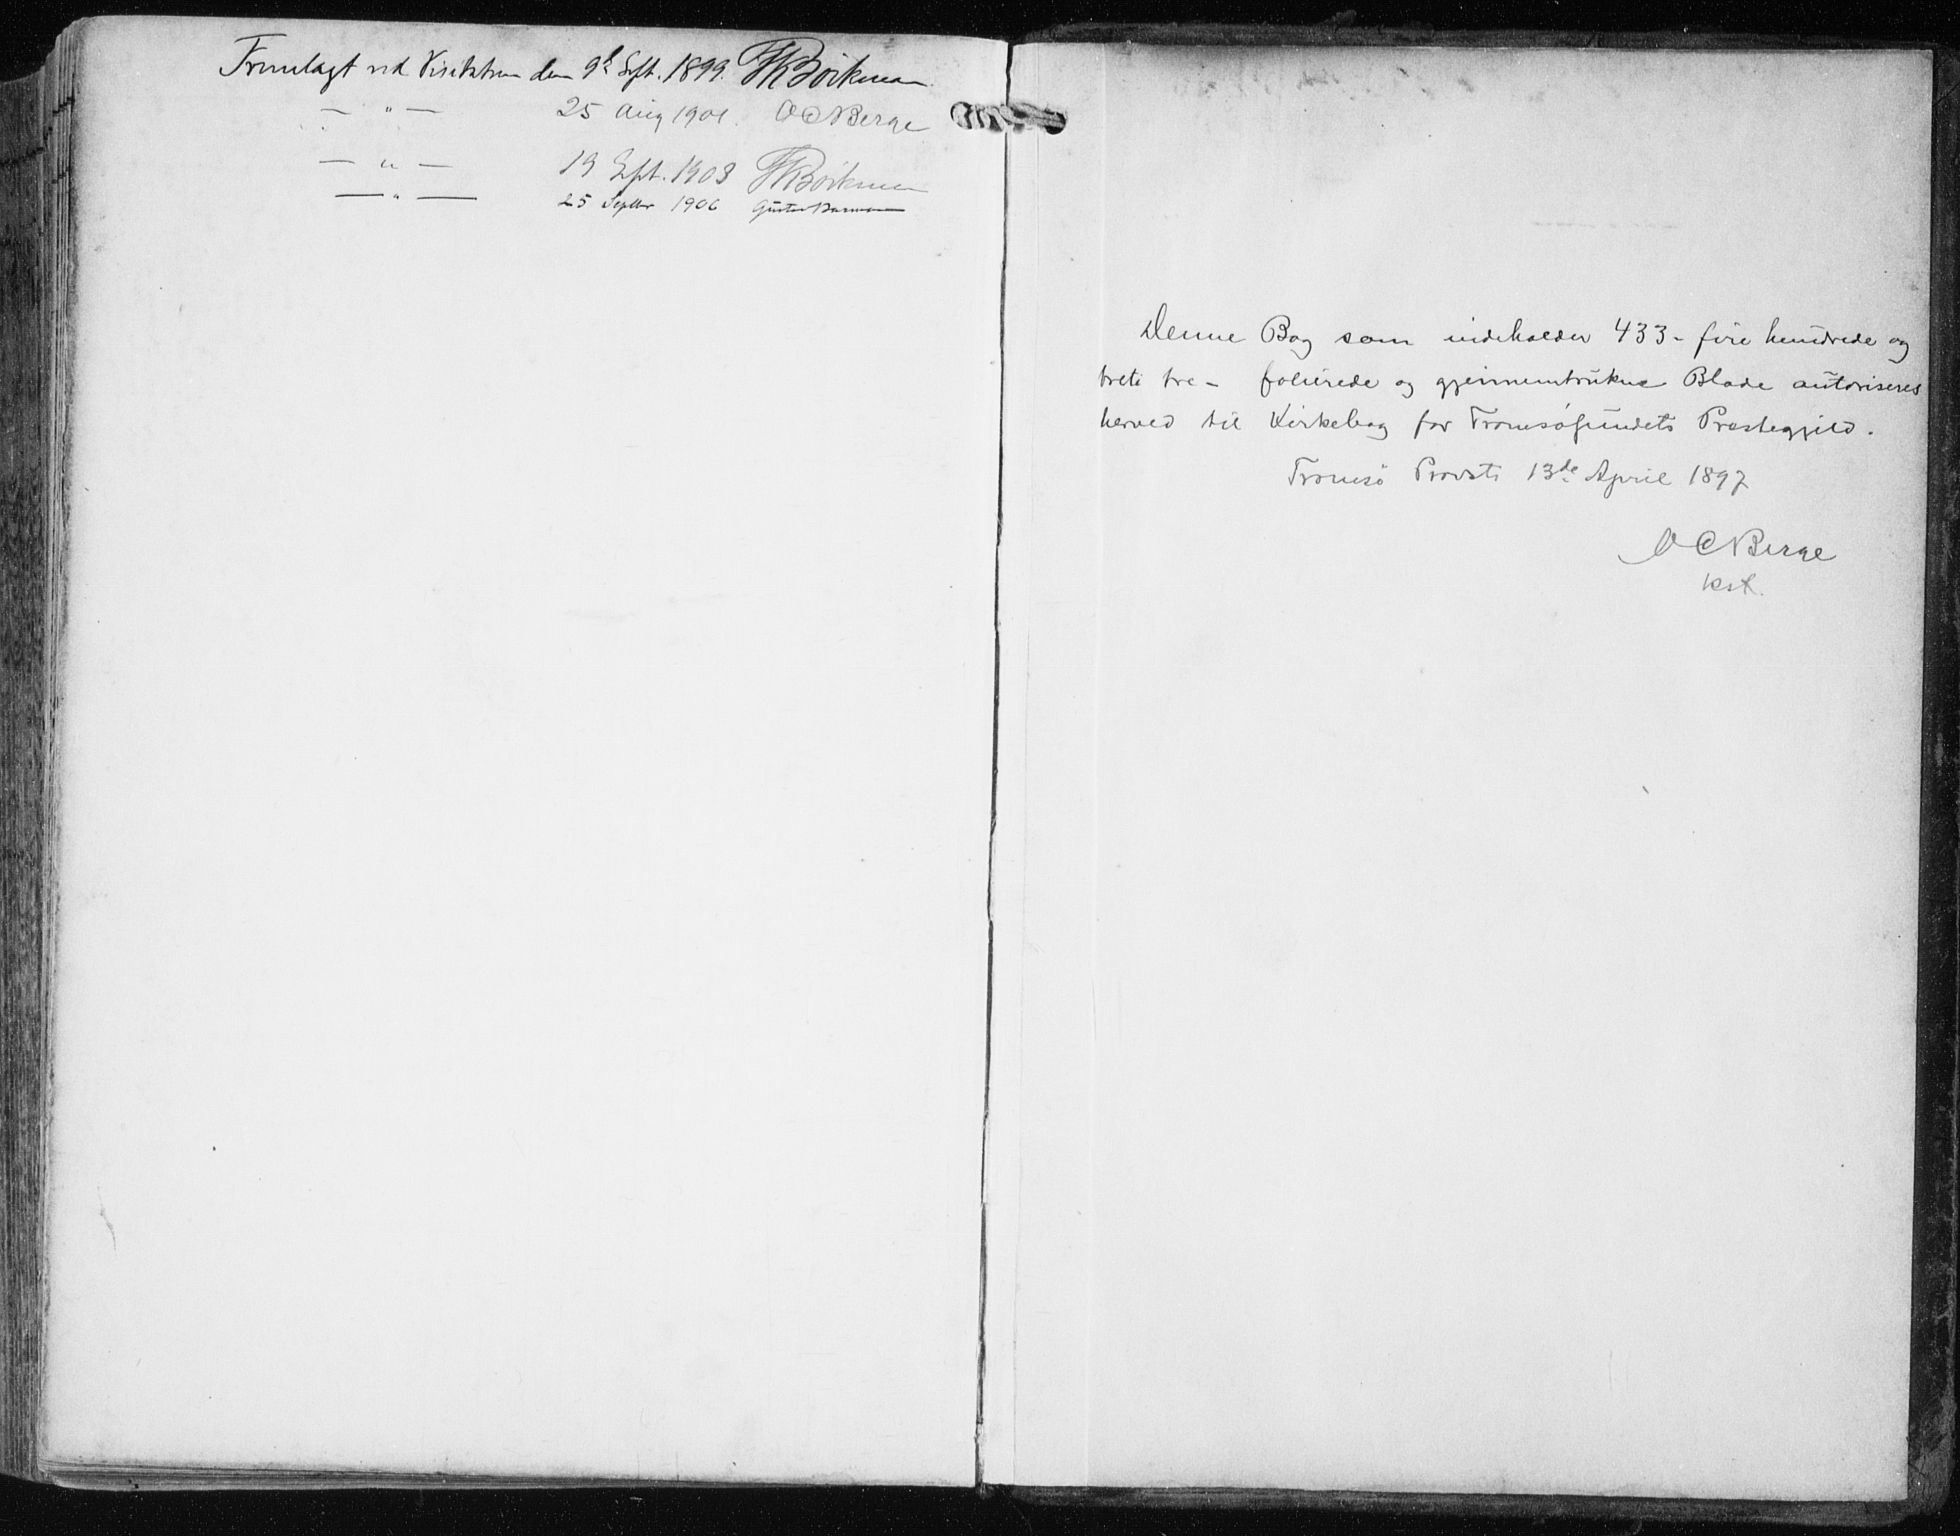 Fremlagt ved Visitatsen den 9d Sept. 1899. Bøckman
— " — 25 Aug 1901. O C Berge
— " — 19 Sept. 1903 Bøckman
— " — 25 Septbr 1906 Gustav
Denne Bog som indeholder 433 - fire hundrede og
treti tre - folierede og gjennemtrukne Blade autoriseres
herved til Kirkebog for Tromsøsundets Præstegjeld.
Tromsø Provsti 13de April 1897
O C Berge
kst.